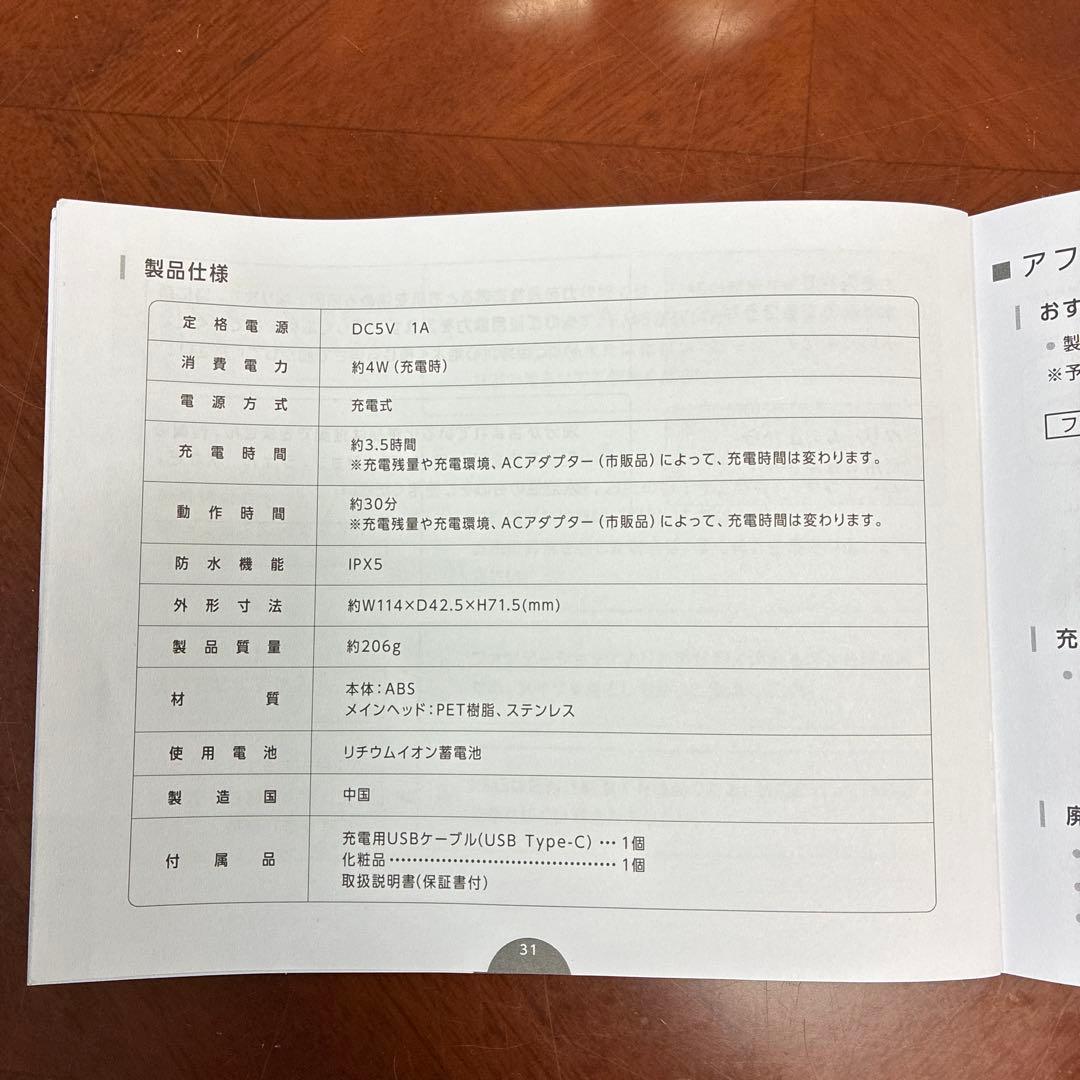 製品仕様
定格電源 DC5V 1A
消費電力 約4W（充電時）
電源方式 充電式
充電時間 約3.5時間
※充電残量や充電環境、ACアダプター（市販品）によって、充電時間は変わります。
動作時間 約30分
※充電残量や充電環境、ACアダプター（市販品）によって、充電時間は変わります。
防水機能 IPX5
外形寸法 約W114×D42.5×H71.5(mm)
製品質量 約206g
材質 本体：ABS
メインヘッド：PET樹脂、ステンレス
使用電池 リチウムイオン蓄電池
製造国 中国
付属品 充電用USBケーブル(USB Type-C) … 1個
化粧品…………………………………… 1個
取扱説明書(保証書付)
31
■アフ
おす
• 製
※予
フ
充
廃